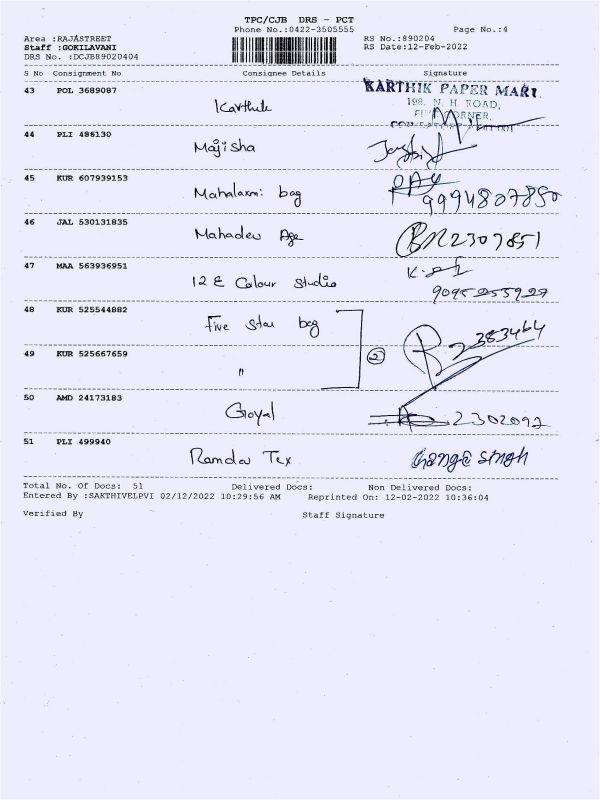 TPC/CJB DRS - PCT
Phone No.:0422-3505555 Page No.:4
Area :RAJASTREET RS No.:890204
Staff :GOKILAVANI RS Date:12-Feb-2022
DRS No. :DCJB89020404
S No Consignment No Consignee Details Signature
43 POL 3689087 Karthik KARTHIK PAPER MART
198, N. H. ROAD,
CORNER,
44 PLI 486130 Majisha
45 KUR 607939153 Mahalaxmi bag 9994807850
46 JAL 530131835 Mahadev Age 2307851
47 MAA 563936951 12 E Colour Studio
9095255927
48 KUR 525544882 Five Star bag 2383464
49 KUR 525667659 " 2
50 AMD 24173183 Goyal 2302092
51 PLI 499940 Ramdev Tex Ganga Singh
Total No. Of Docs: 51 Delivered Docs: Non Delivered Docs:
Entered By :SAKTHIVELPVI 02/12/2022 10:29:56 AM Reprinted On: 12-02-2022 10:36:04
Verified By Staff Signature